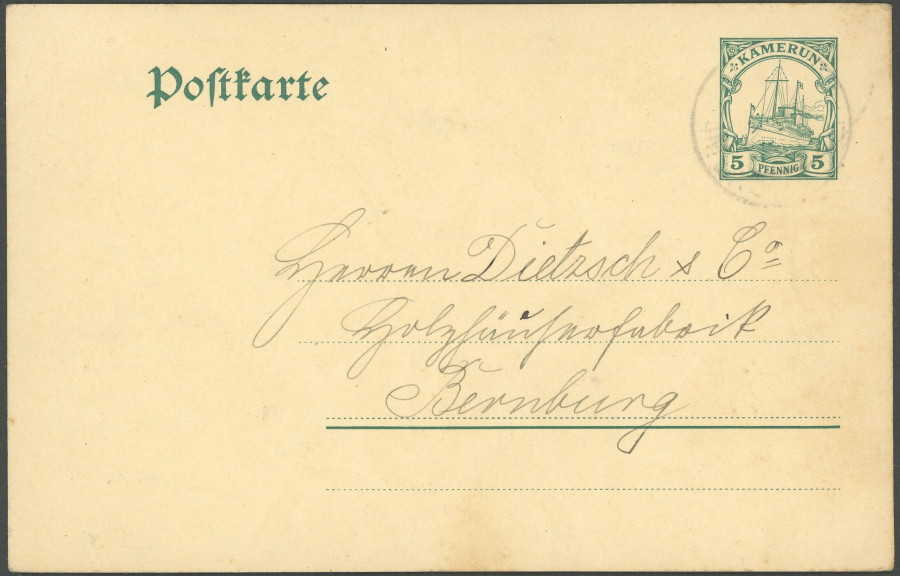 Postkarte
KAMERUN
5 PFENNIG 5
Herren Dietzsch & Co
Holzhäuserfabrik
Bernburg